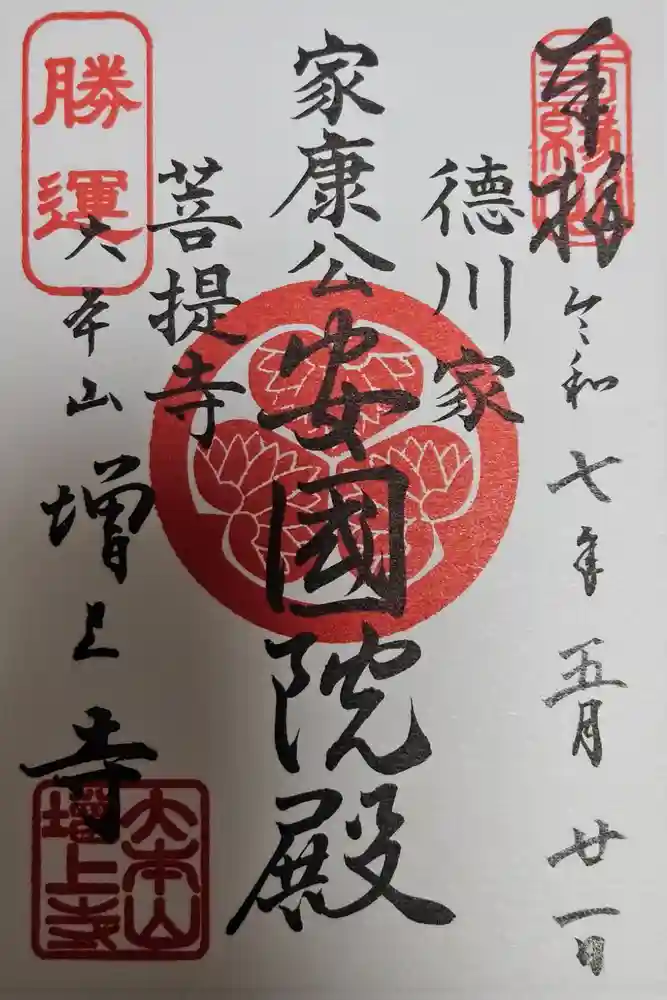 奉拝
令和七年五月廿一日
徳川家
家康公
安國院殿
菩提寺
勝運
大本山
増上寺
大本山
増上寺